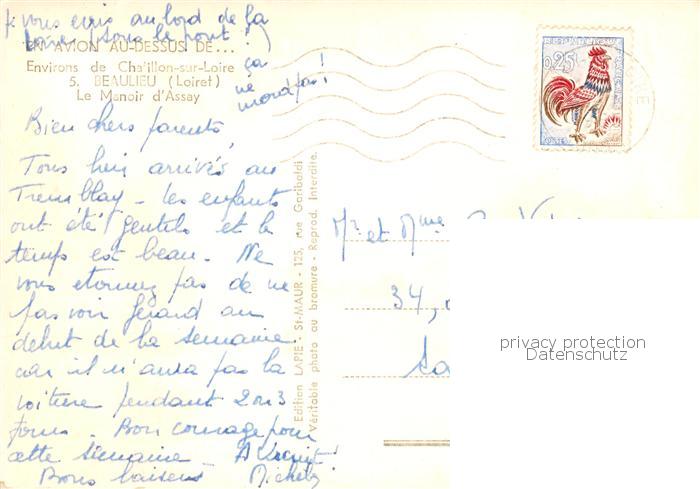 je vous écris au bord de la
Loire (sous le pont !)
ça
ne
mord pas !
EN AVION AU-DESSUS DE...
Environs de Cha'illon-sur-Loire
5. BEAULIEU (Loiret)
Le Manoir d'Assay
Bien chers parents,
Tous bien arrivés au
Tremblay - les enfants
ont été gentils et le
temps est beau. Ne
vous étonnez pas de ne
pas voir Gérard au
début de la semaine
car il n'aura pas la
voiture pendant 2 ou 3
jours. Bon courage pour
cette semaine - A bientôt !
Bons baisers Michel
Edition LAPIE - St-MAUR - 125, rue Garibaldi
Véritable photo au bromure - Reprod. Interdite.
0,25
Mr et Mme
34,
privacy protection
Datenschutz